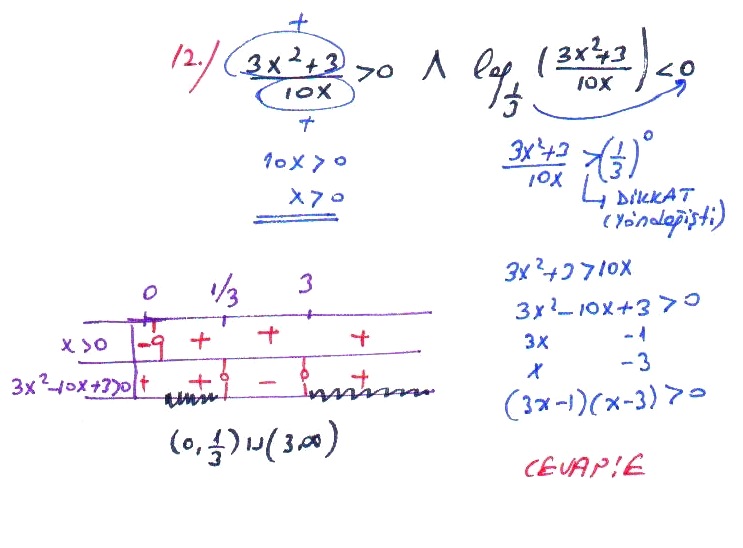 12.) (3x²+3)/(10x) > 0 ∧ log_{1/3} ((3x²+3)/(10x)) < 0
+
+
10x > 0
x > 0
(3x²+3)/(10x) > (1/3)⁰
DİKKAT
(Yön değişti)
3x²+3 > 10x
3x²-10x+3 > 0
3x -1
x -3
(3x-1)(x-3) > 0
0 1/3 3
x > 0 - + + +
3x²-10x+3>0 + + - +
(0, 1/3) ∪ (3,∞)
CEVAP: E